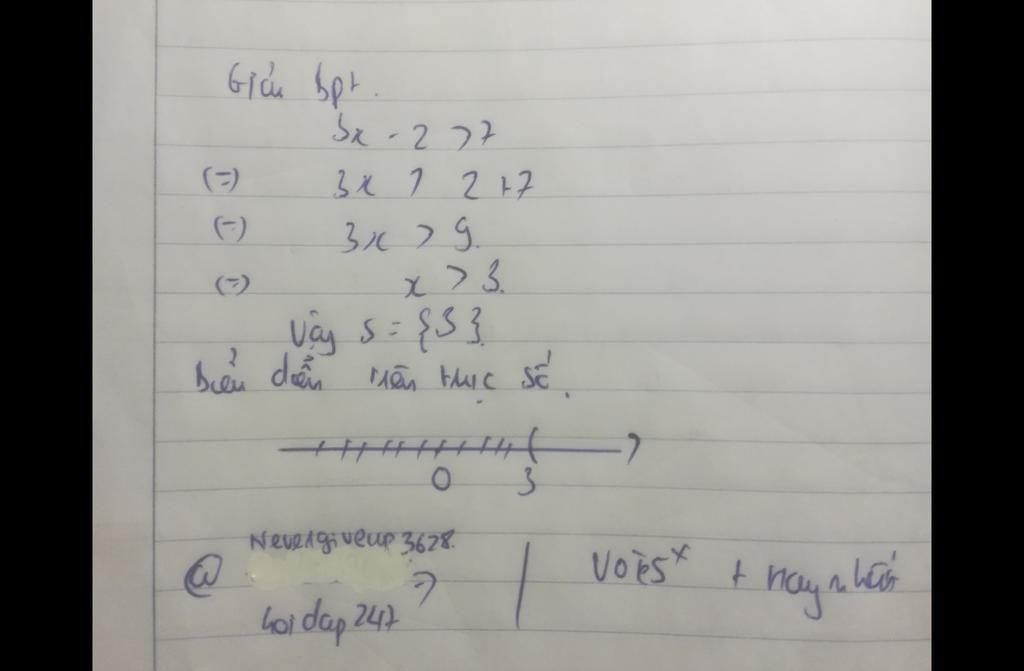 Giải bpt.
3x - 2 > 7
(=) 3x > 2 + 7
(=) 3x > 9.
(=) x > 3.
Vậy S = {3}
Biểu diễn trên trục số.
0 3
Nevergiveup3628.
@
hoidap247
Vote 5* + hay nhất